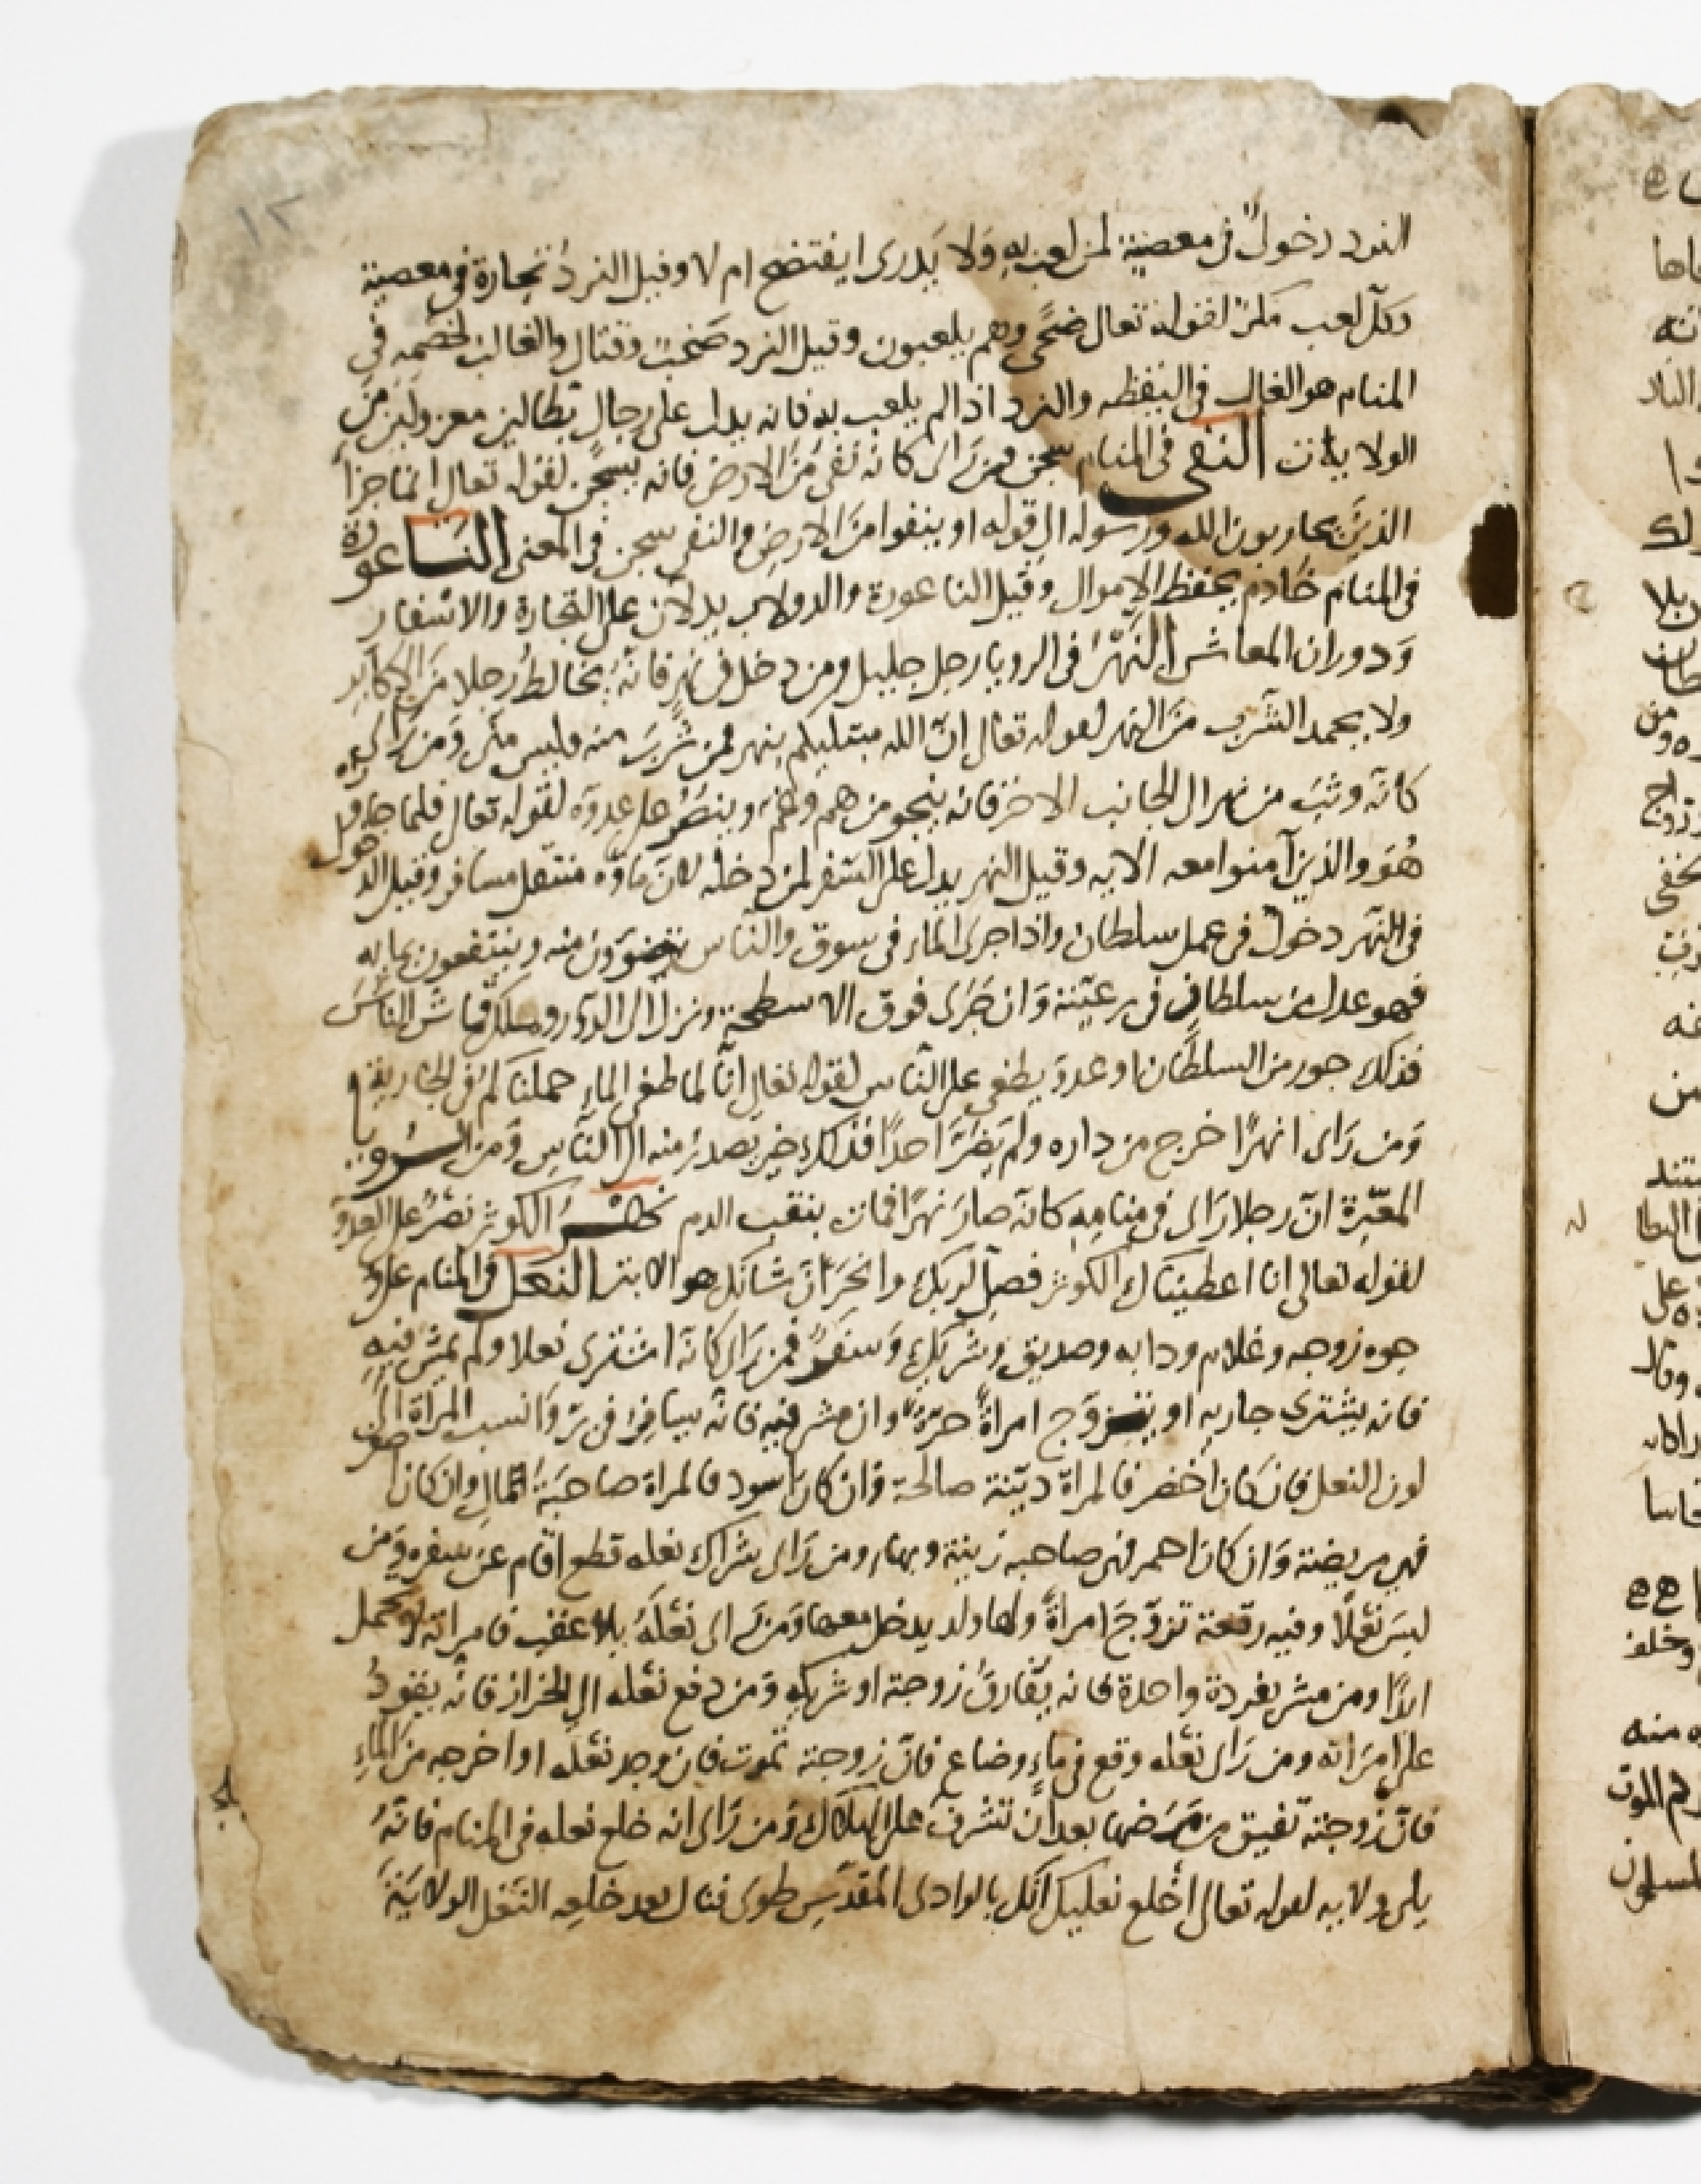 النرد دخول في معصية لمن لعب به ولا يدرى ايفتضح ام لا وقيل النرد تجارة في معصية
وكل لعب مكر لقوله تعالى ضحى وهم يلعبون وقيل النرد صخب وقتال والغالب لخصمه في
المنام هو الغالب في اليقظه والنرد اذا لم يلعب به فانه يدل على رجال بطالين معزولين من
الولايات النفى في المنام سجن فمن راى كانه نفى من الارض فانه يسجن لقوله تعالى انما جزآ
الذين يحاربون الله ورسوله الى قوله او ينفوا من الارض والنفى سجن في المعنى الناعورة
في المنام خادم يحفظ الاموال وقيل الناعورة والدولاب يدلان على التجارة والاسفار
ودوران المعاش النهر في الرويا رجل جليل ومن دخل في نهر فانه يخالط رجلا من الاكابر
ولا يحمد الشرب من النهر لقوله تعالى ان الله مبتليكم بنهر فمن شرب منه فليس منى ومن راى
كانه وثب من نهر الى الجانب الاخر فانه ينجو من هم وغم وينصر على عدوه لقوله تعالى فلما جاوزه
هو والذين آمنوا معه الايه وقيل النهر يدل على السفر لمن دخله لان ماؤه منتقل مسافر وقيل الدخول
في النهر دخول في عمل سلطان واذا جرى الماء في سوق والناس يتضوؤن منه وينتفعون بمايه
فهو عدل من سلطان في رعيته وان جرى فوق الاسطحة ونزل الى الدور وملك قماش الناس
فذلك جور من السلطان او عدو يطغى على الناس لقوله تعالى انا لما طغى الماء حملناكم في الجارية
ومن راى انهرا خرج من داره ولم يضر احدا فذلك خير يصدر منه الى الناس ومن الرويا
المعبرة ان رجلا راى في منامه كانه صار نهرا فمات بنقب الدم نهر الكوثر نصر على العدو
لقوله تعالى انا اعطيناك الكوثر فصل لربك وانحر ان شانئك هو الابتر النعل في المنام على و
جوه زوجه وغلام ودابه وصديق وشريك وسفر فمن راى كانه اشترى نعلا ولم يمش فيه
فانه يشترى جاريه او يتزوج امراة حرة وان مشى فيه فانه يسافر في بر وانسب المراة الى
لون النعل فان كان اخضر فالمراة دينة صالحة وان كان اسود فالمراة صاحبة المال وان كان اصفر
فهي مريضة وان كان احمر فهى صاحبه زينة وبهاء ومن راى شراك نعله قطع اقام عن سفره ومن
لبس نعلا وفيه رقعة تزوج امراة ولها ولد يدخل معها ومن راى نعله بلا عقب فامراته لا تحمل
ابدا ومن مشى بفردة واحدة فانه يفارق زوجته او شريكه ومن دفع نعله الى الخراز فانه يقود
على امراته ومن راى نعله وقع في ماء وضاع فان زوجته تموت فان وجد نعله او اخرجه من الماء
فان زوجته تفيق من مرضها بعد ان تشرف على الهلاك ومن راى انه خلع نعله في المنام فانه
يلى ولايه لقوله تعالى اخلع نعليك انك بالوادى المقدس طوى فنال بعد خلعه النعل الولاية